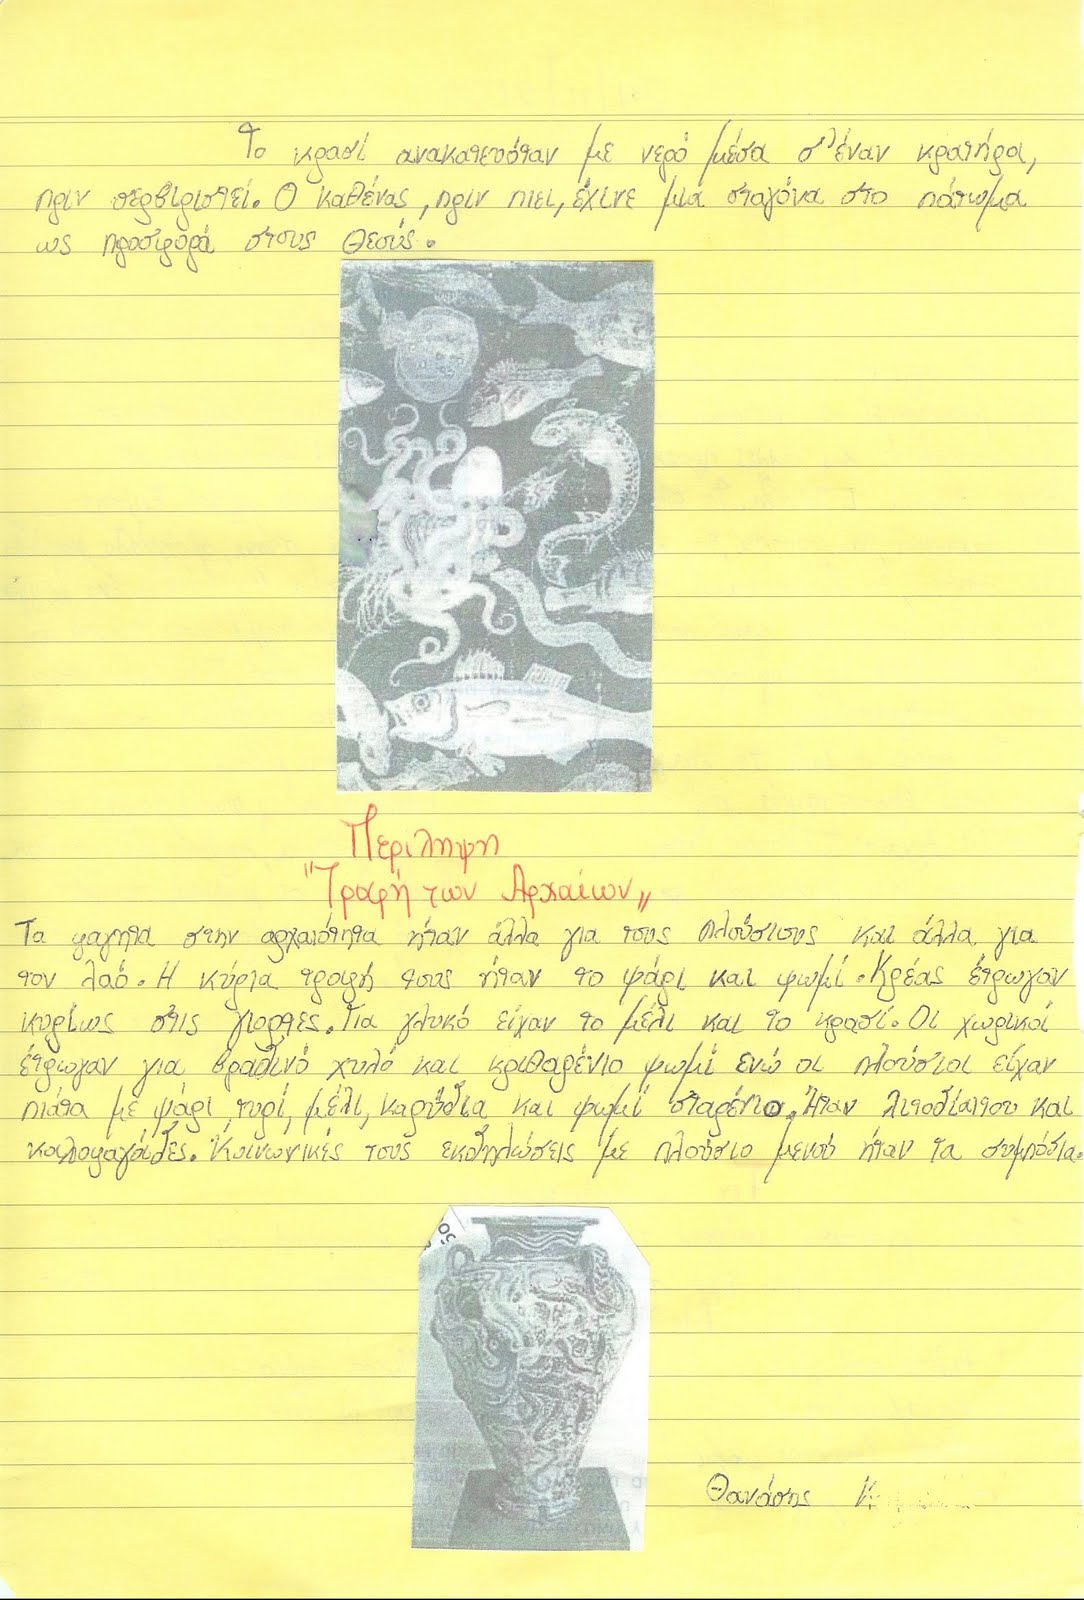 Το κρασί ανακατευόταν με νερό μέσα σ' έναν κρατήρα,
πριν σερβιριστεί. Ο καθένας, πριν πιει, έχινε μια σταγόνα στο πάτωμα
ως προσφορά στους Θεούς.
Περιληψη
"Τροφή των Αρχαίων"
Τα φαγητα στην αρχαιότητα ήταν άλλα για τους πλούσιους και άλλα για
τον λαό. Η κύρια τροφή τους ήταν το ψάρι και ψωμί. Κρέας έτρωγαν
κυρίως στις γιορτες. Για γλυκό είχαν το μέλι και το κρασί. Οι χωρικοί
έτρωγαν για βραδινό χυλό και κριθαρένιο ψωμί ενώ οι πλούσιοι είχαν
πιάτα με ψάρι, τυρί, μέλι, καρύδια και ψωμί σταρένιο. Ήταν λιτοδίαιτοι και
καλοφαγάδες. Κοινωνικές τους εκδηλώσεις με πλούσιο μενού ήταν τα συμπόσια.
Θανάσης Κ